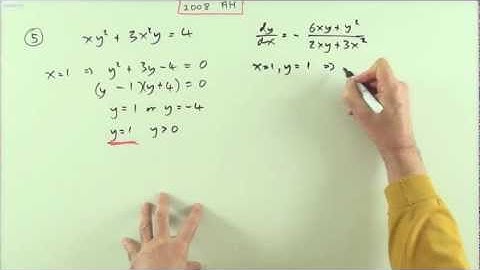 2008 AH
⑤ xy² + 3x²y = 4
x=1 ⇒ y² + 3y - 4 = 0
(y - 1)(y + 4) = 0
y = 1 or y = -4
y=1 y>0
dy/dx = - (6xy + y²)/(2xy + 3x²)
x=1, y = 1 ⇒